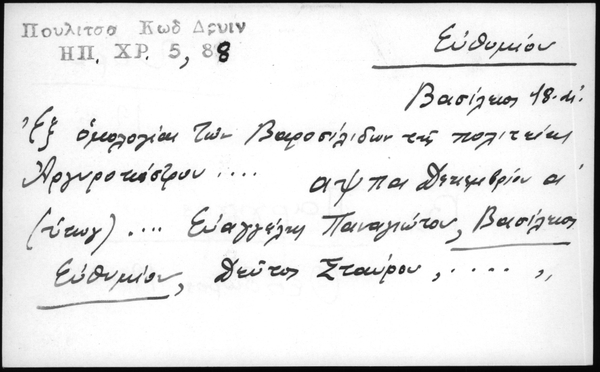 Πουλιτσα Κωδ Δρυιν
ΗΠ. ΧΡ. 5, 88
Εὐθυμίου
Βασίλειος 18. αἰ.
Ἐξ ὁμολογίας τῶν Βαροσιλίδων τῆς πολιτείας
Ἀργυροκάστρου .... αψπα Δεκεμβρίου α΄
.... Εὐαγγέλης Παναγιώτου, Βασίλειος
Εὐθυμίου, Σταύρου, .... ,,